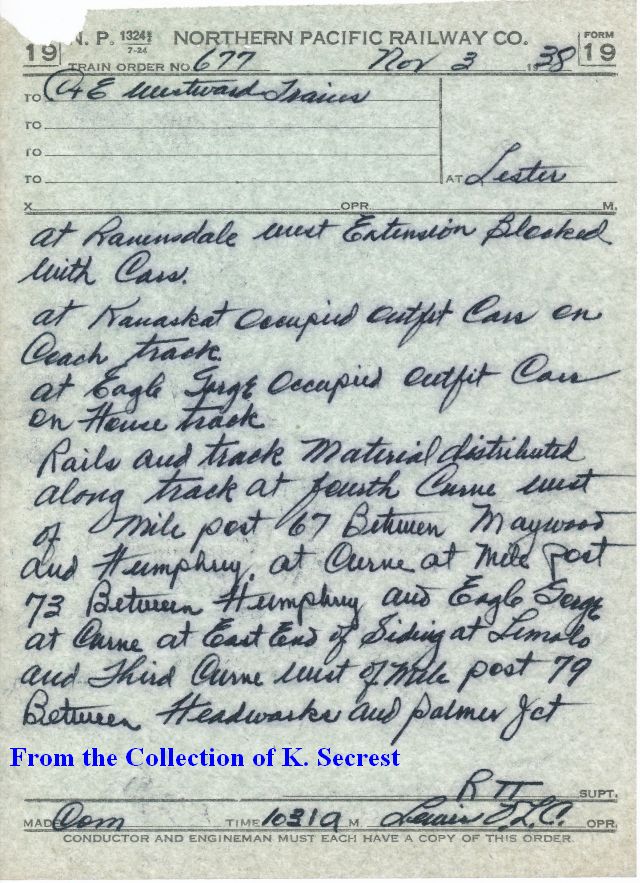 19 N. P. 1324½ NORTHERN PACIFIC RAILWAY CO. FORM 19
7-24
TRAIN ORDER NO 677 Nov 3 1938
TO C & E Westward Trains
TO
TO
TO AT Lester
X OPR. M.
at Ravensdale west Extension Blocked
with Cars.
at Kanaskat Occupied outfit Cars on
Coach track.
at Eagle Gorge Occupied outfit Cars
on House track
Rails and track Material distributed
along track at fourth Curve west
of Mile post 67 Between Maywood
and Humphrey, at Curve at Mile post
73 Between Humphrey and Eagle Gorge
at Curve at East End of Siding at Lemolo
and Third Curve west of Mile post 79
Between Headworks and Palmer Jct
From the Collection of K. Secrest
R T T SUPT.
MADE Com TIME 1031 a M. OPR.
CONDUCTOR AND ENGINEMAN MUST EACH HAVE A COPY OF THIS ORDER.